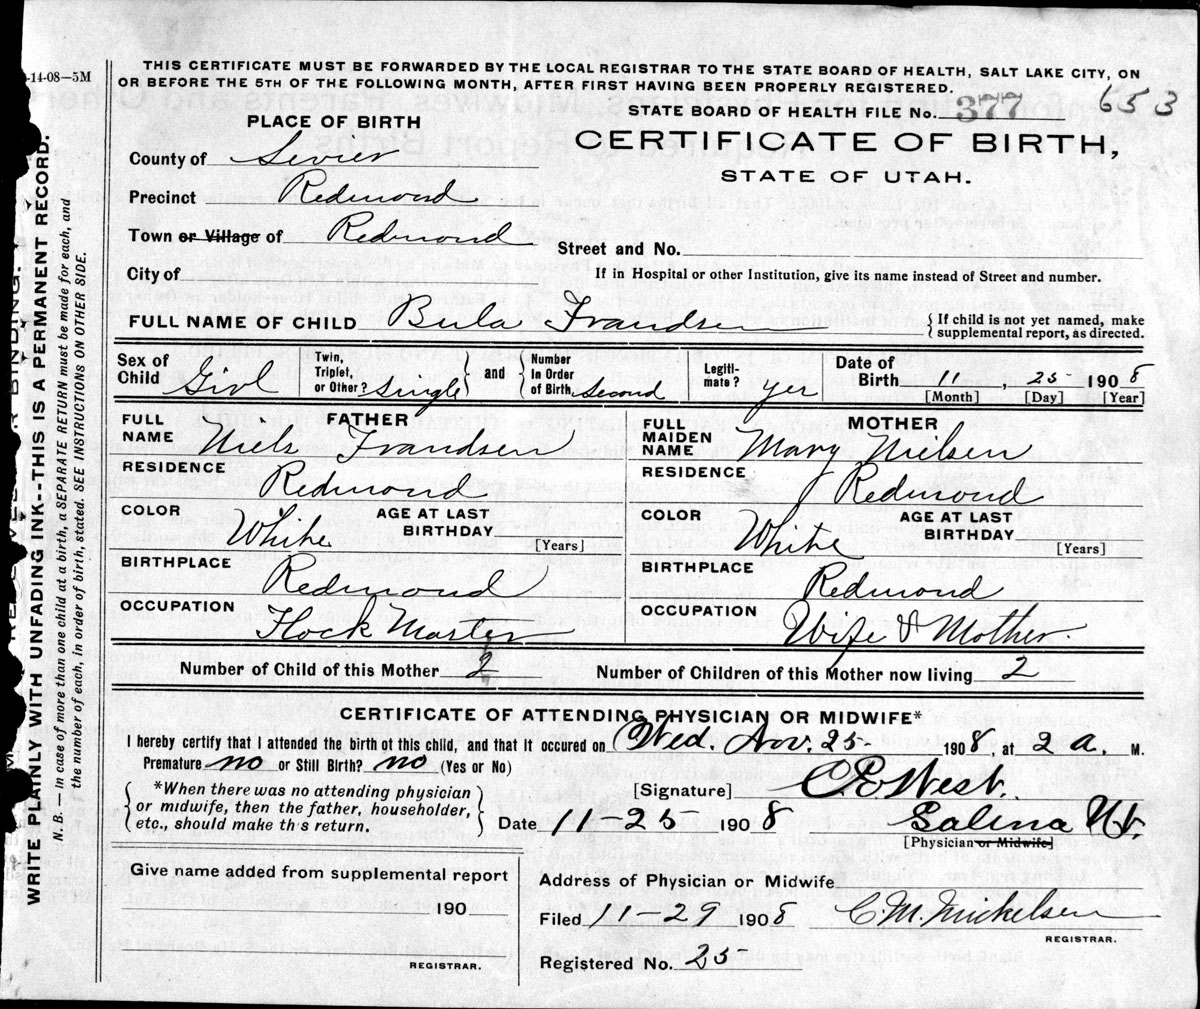 -14-08—5M
THIS CERTIFICATE MUST BE FORWARDED BY THE LOCAL REGISTRAR TO THE STATE BOARD OF HEALTH, SALT LAKE CITY, ON
OR BEFORE THE 5TH OF THE FOLLOWING MONTH, AFTER FIRST HAVING BEEN PROPERLY REGISTERED.
STATE BOARD OF HEALTH FILE No. 377 653
PLACE OF BIRTH
CERTIFICATE OF BIRTH,
STATE OF UTAH.
County of Sevier
Precinct Redmond
Town or Village of Redmond
Street and No.
City of
If in Hospital or other Institution, give its name instead of Street and number.
FULL NAME OF CHILD Bula Frandsen
{ If child is not yet named, make
supplemental report, as directed.
Sex of Child Girl
Twin, Triplet, or Other? Single } and { Number in Order of Birth Second
Legiti-mate? yes
Date of Birth 11, 25 1908
[Month] [Day] [Year]
FATHER
FULL NAME Niels Frandsen
RESIDENCE Redmond
COLOR White AGE AT LAST BIRTHDAY [Years]
BIRTHPLACE Redmond
OCCUPATION Flock Master
MOTHER
FULL MAIDEN NAME Mary Nielsen
RESIDENCE Redmond
COLOR White AGE AT LAST BIRTHDAY [Years]
BIRTHPLACE Redmond
OCCUPATION Wife & Mother.
Number of Child of this Mother 2 Number of Children of this Mother now living 2
CERTIFICATE OF ATTENDING PHYSICIAN OR MIDWIFE*
I hereby certify that I attended the birth ot this child, and that it occured on Wed. Nov. 25- 1908, at 2 a. M.
Premature no or Still Birth? no (Yes or No)
{ *When there was no attending physician
or midwife, then the father, householder,
etc., should make th s return. }
[Signature] C E West.
Date 11-25 1908 Salina Ut.
[Physician or Midwife]
Give name added from supplemental report
190
REGISTRAR.
Address of Physician or Midwife
Filed 11-29 1908 C. M. Mickelsen
REGISTRAR.
Registered No. 25
WRITE PLAINLY WITH UNFADING INK--THIS IS A PERMANENT RECORD.
N. B. — In case of more than one child at a birth, a SEPARATE RETURN must be made for each, and
the number of each, in order of birth, stated. SEE INSTRUCTIONS ON OTHER SIDE.